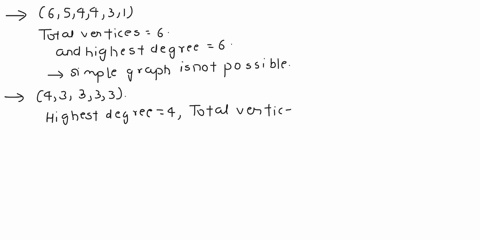 → (6,5,4,4,3,1)
Total vertices = 6.
and highest degree = 6.
→ simple graph is not possible.
→ (4,3,3,3,3).
Highest degree = 4, Total vertic-